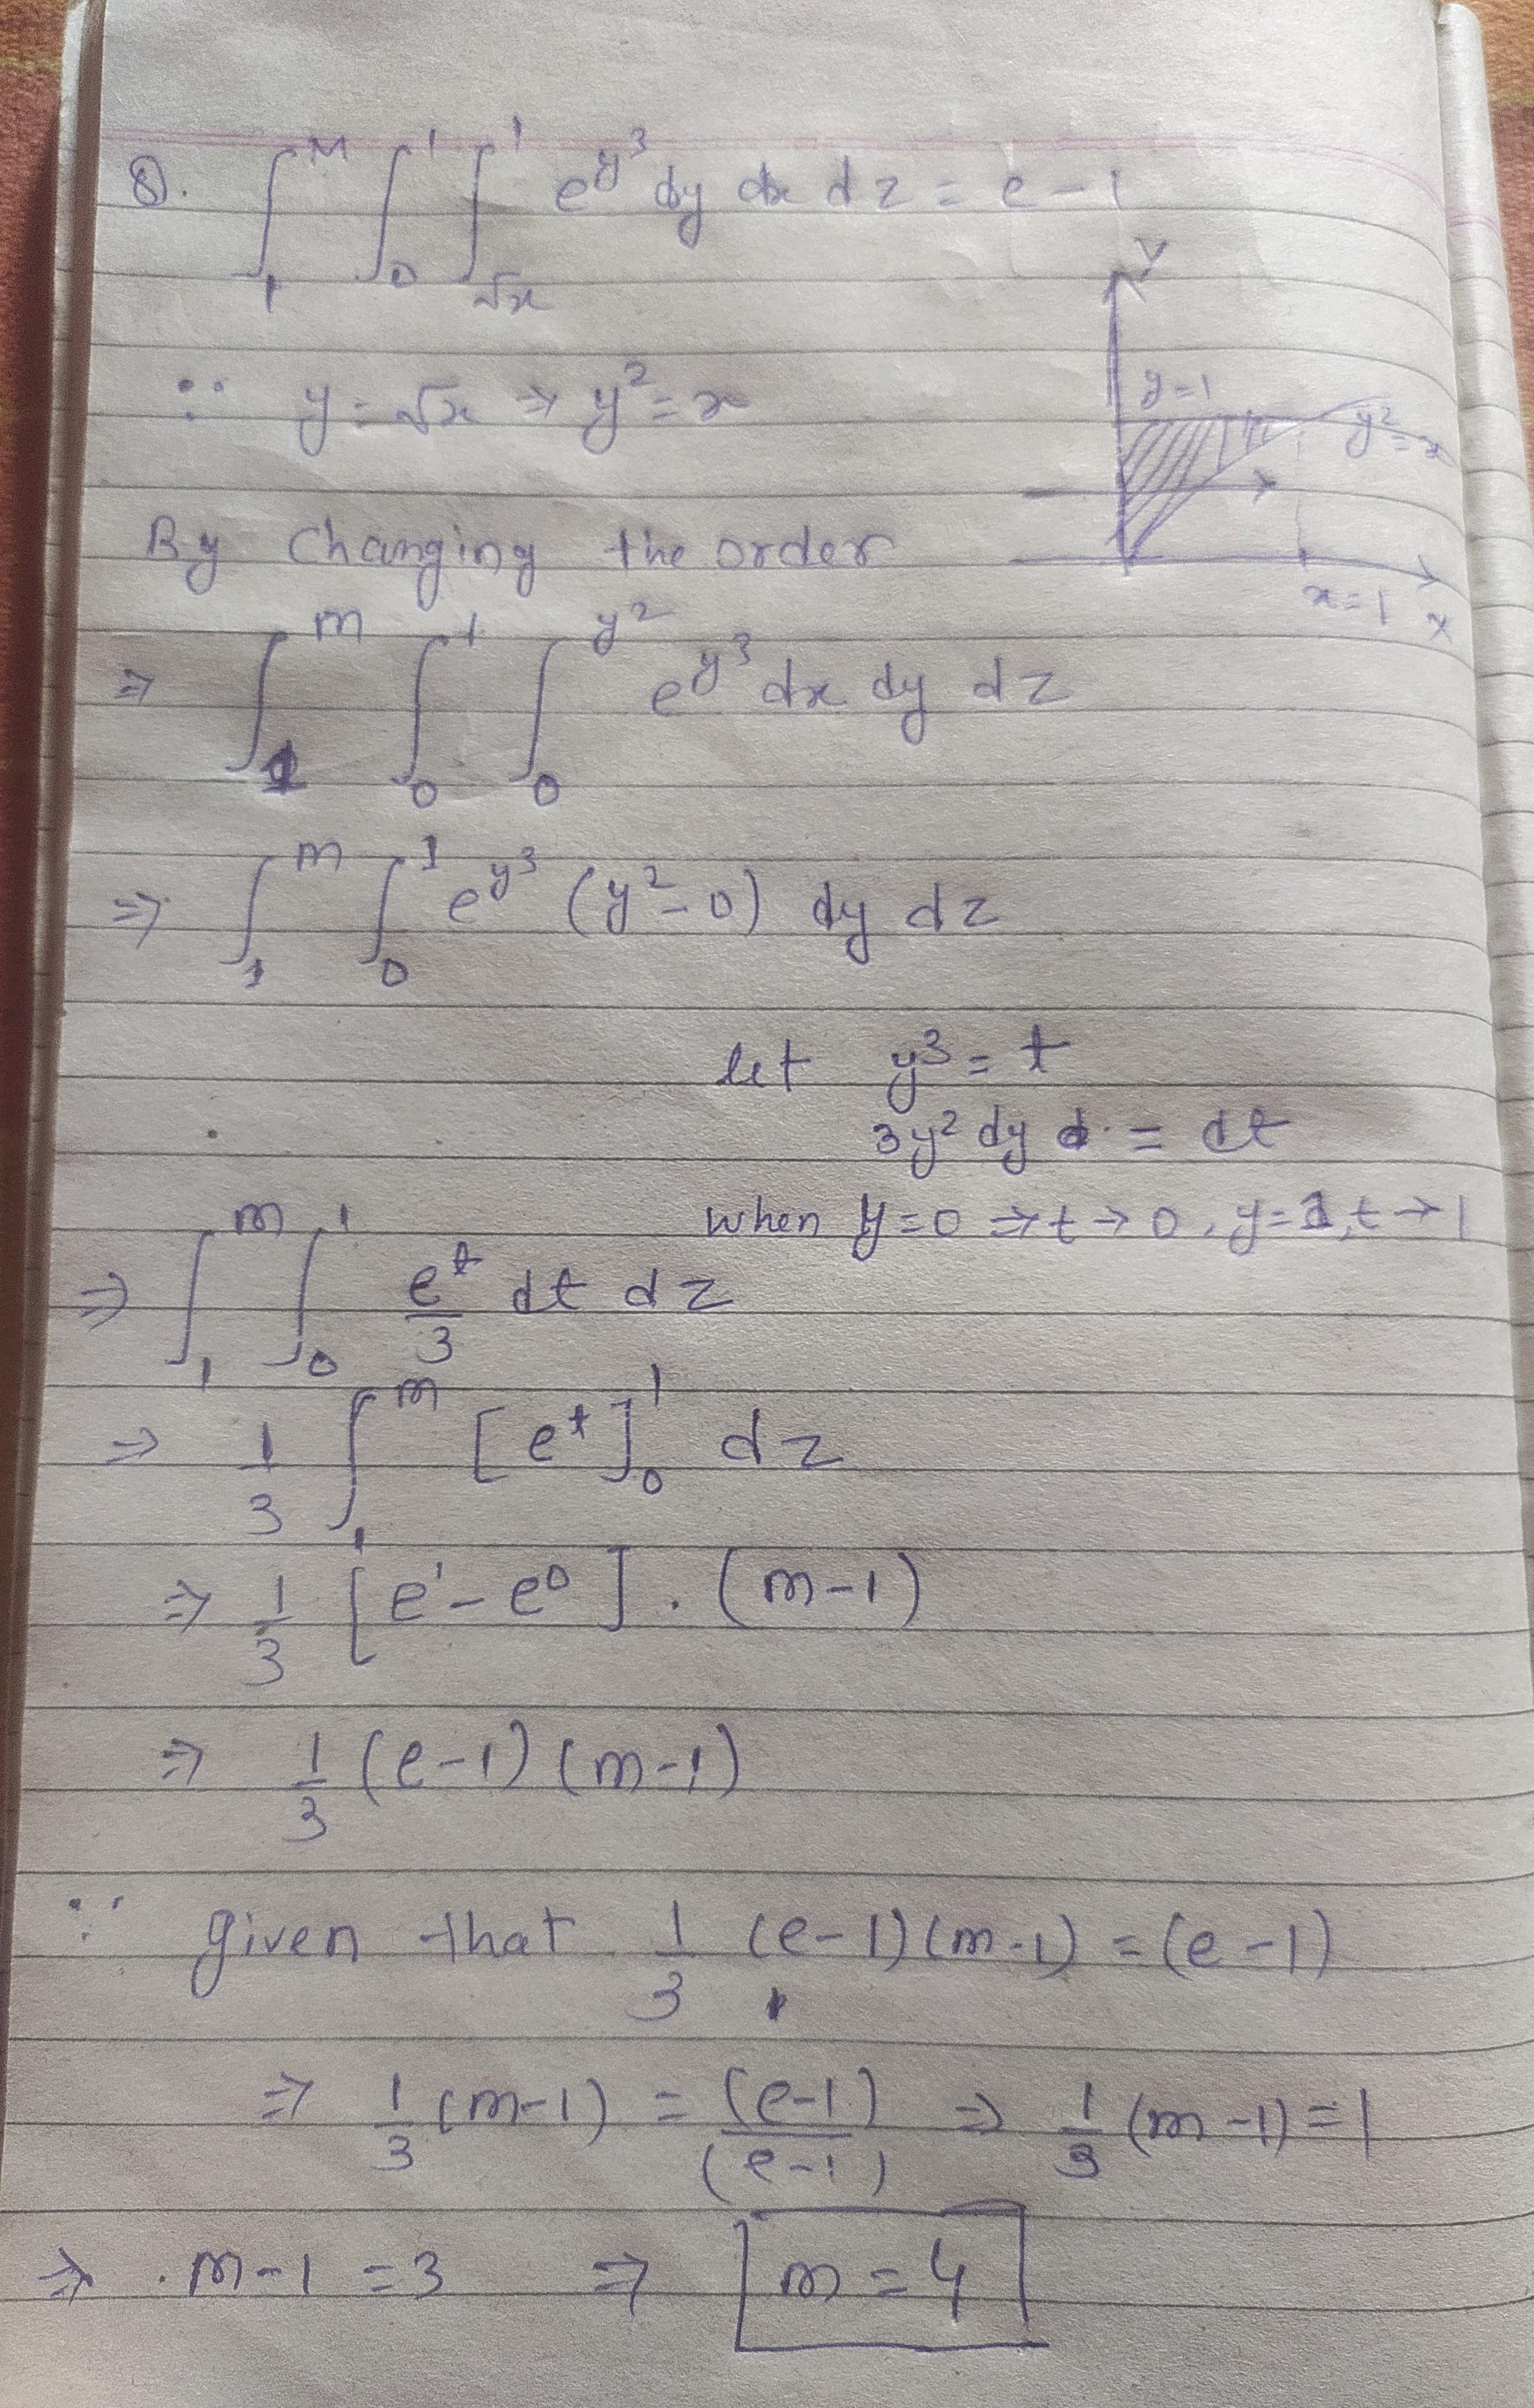 Q. ∫₁ᴹ ∫₀¹ ∫_√x¹ e^y³ dy dx dz = e - 1
Y
y=1
y²=x
x=1 X
∵ y = √x ⇒ y² = x
By Changing the order
⇒ ∫₁ᵐ ∫₀¹ ∫₀^y² e^y³ dx dy dz
⇒ ∫₁ᵐ ∫₀¹ e^y³ (y²-0) dy dz
let y³ = t
3y² dy = dt
when y=0 ⇒ t→0, y=1, t→1
⇒ ∫₁ᵐ ∫₀¹ e^t/3 dt dz
⇒ 1/3 ∫₁ᵐ [e^t]₀¹ dz
⇒ 1/3 [e¹ - e⁰] . (m-1)
⇒ 1/3 (e-1) (m-1)
∵ given that 1/3 (e-1)(m-1) = (e-1)
⇒ 1/3 (m-1) = (e-1)/(e-1) ⇒ 1/3 (m-1) = 1
⇒ m-1 = 3 ⇒ m = 4